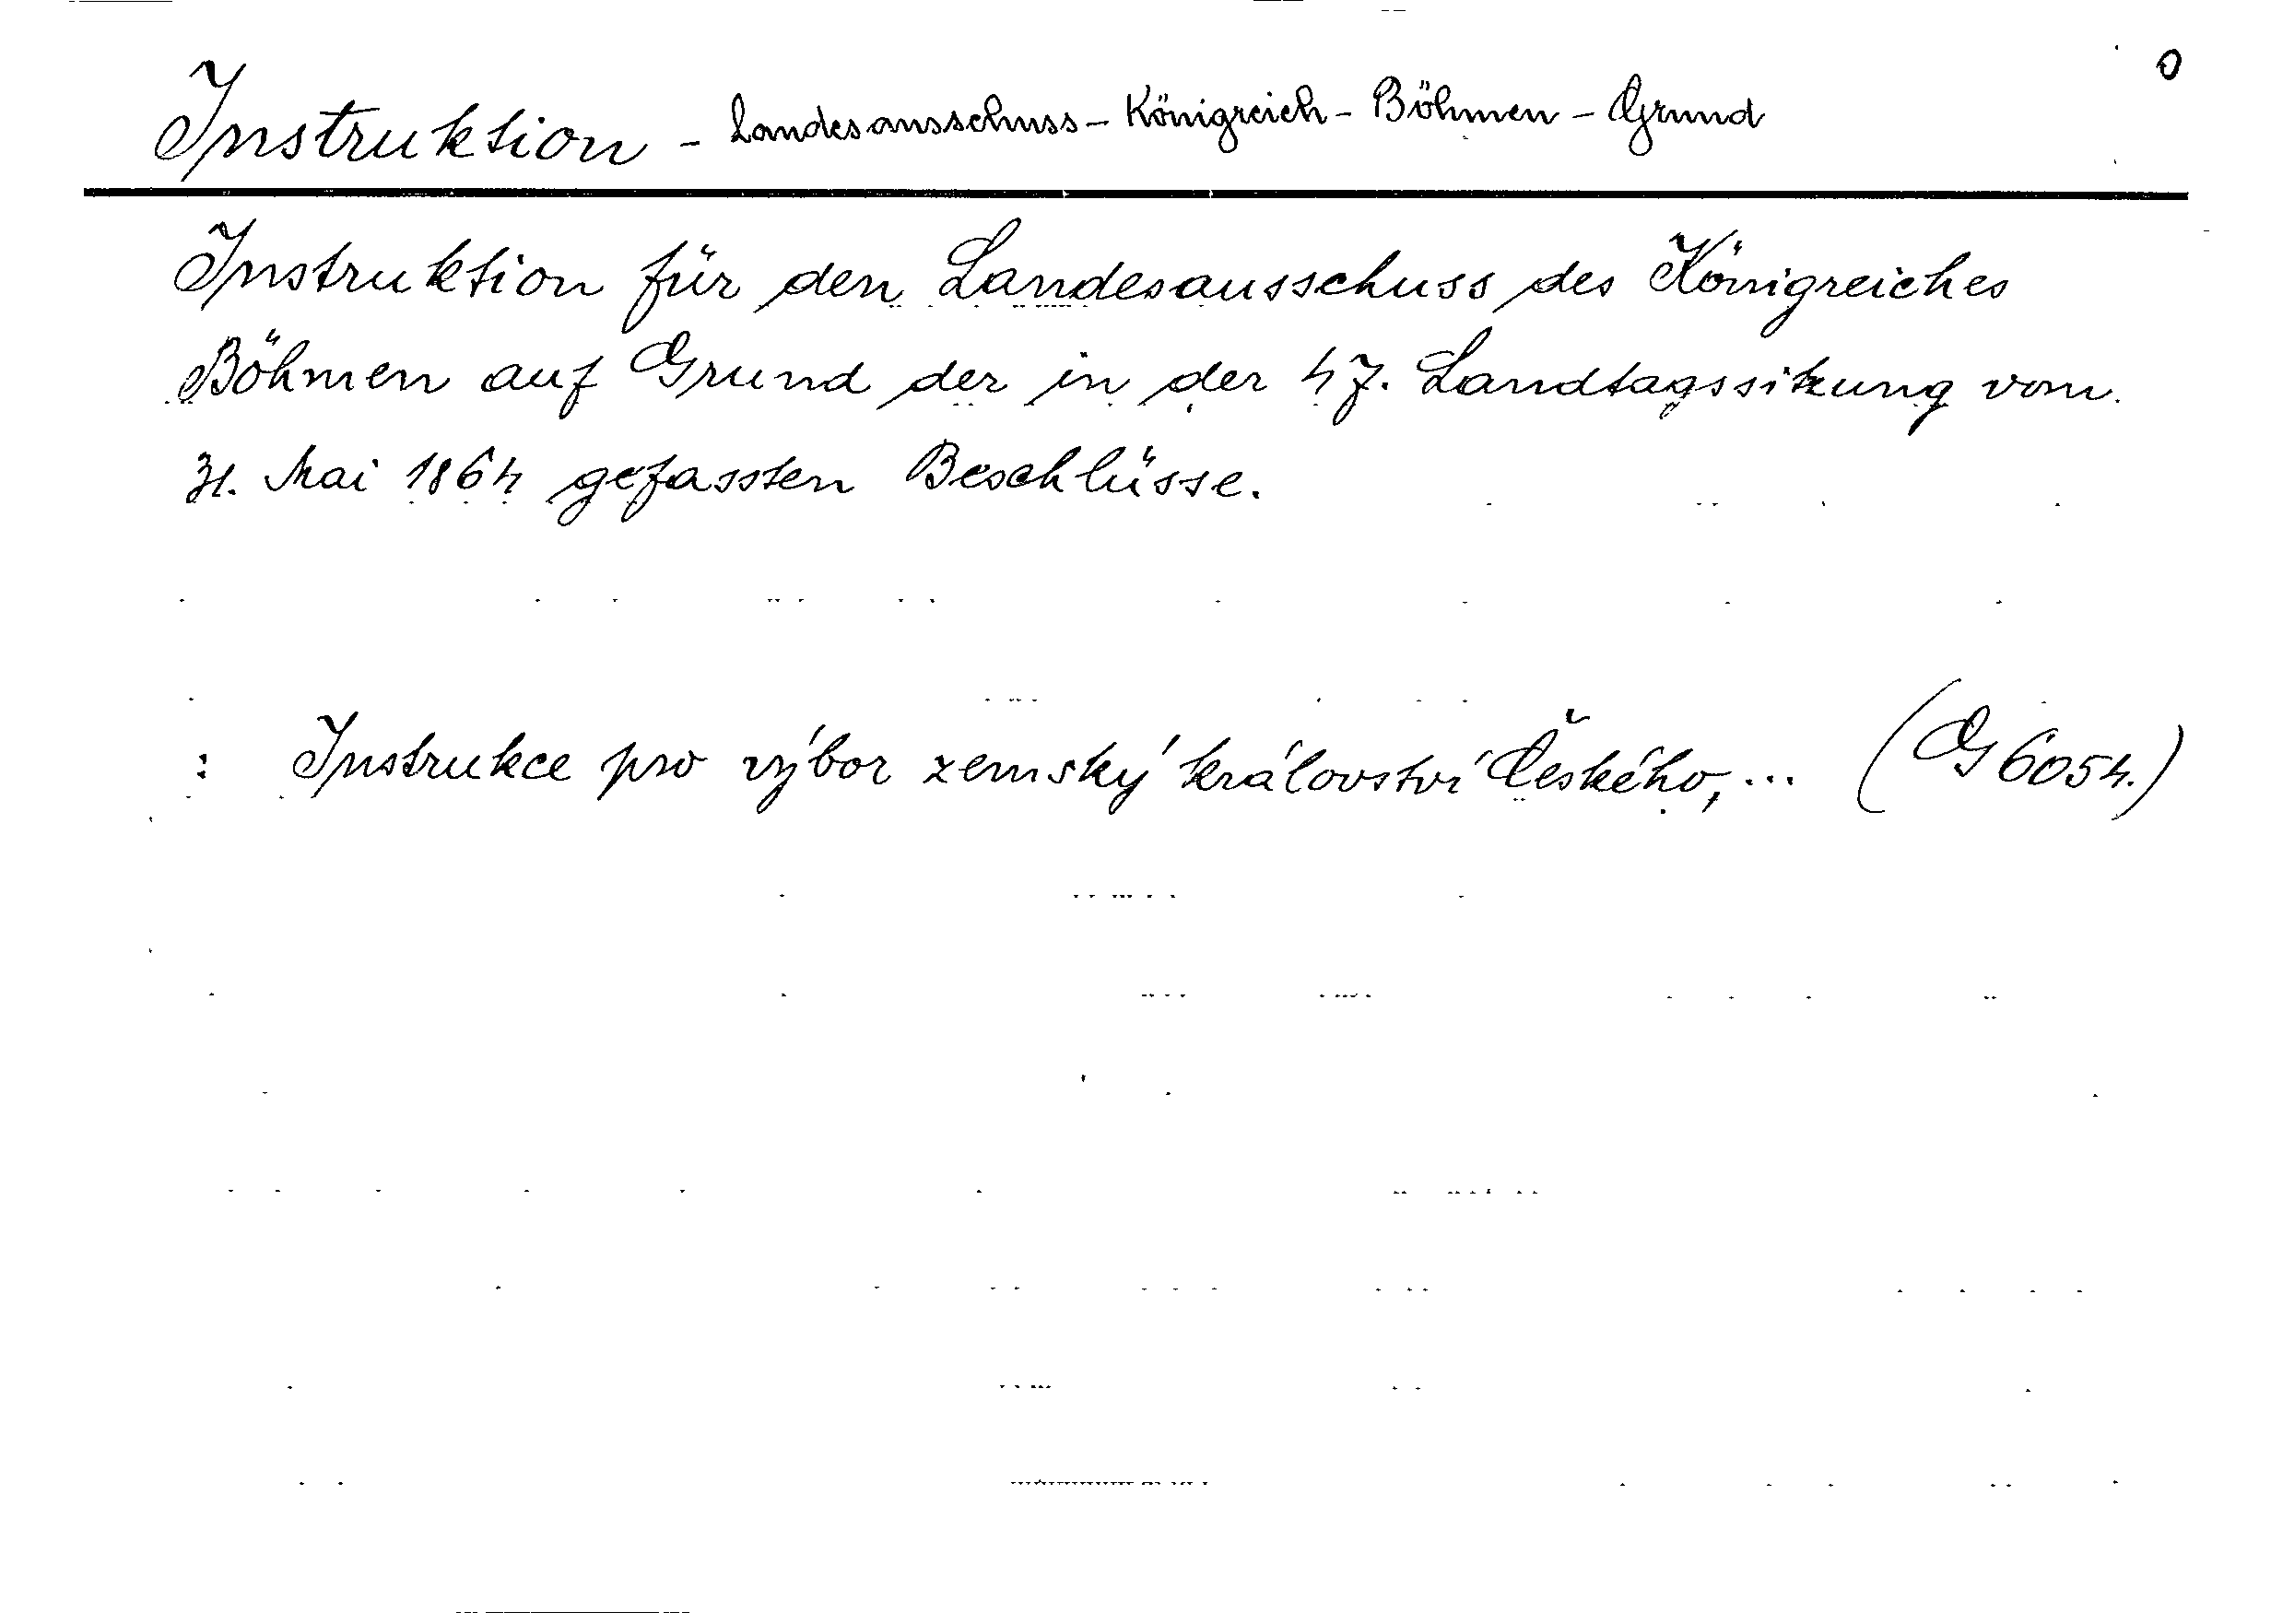 0
Instruktion - Landesausschuss - Königreich - Böhmen - Grund
Instruktion für den Landesausschuss des Königreiches
Böhmen auf Grund der in der 47. Landtagssitzung vom
31. Mai 1864 gefassten Beschlüsse.
: Instrukce pro výbor zemský království Českého, ... (G 6054.)